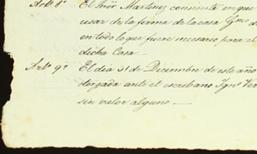 Art. 8º El Señor Martinez consiente en que
usar de la firma de la casa
en todo lo que fuere necesario para el
dicha Casa.
Art. 9º El dia 31 de Diciembre de este año
otorgada ante el escribano Ygnº
sin valor alguno.